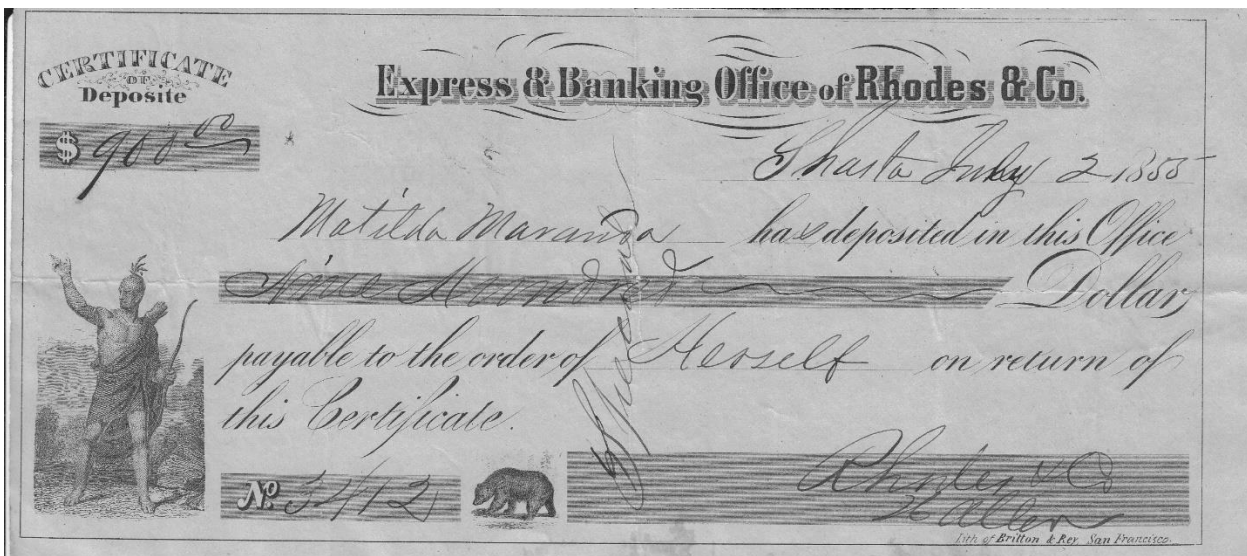 CERTIFICATE
OF
Deposite
Express & Banking Office of Rhodes & Co.
$ 900 00
Shasta July 2 1855
Matilda Maranda has deposited in this Office
Nine Hundred Dollars
payable to the order of Herself on return of
this Certificate.
No. 3412
Rhodes & Co
Lith of Britton & Rey San Francisco.